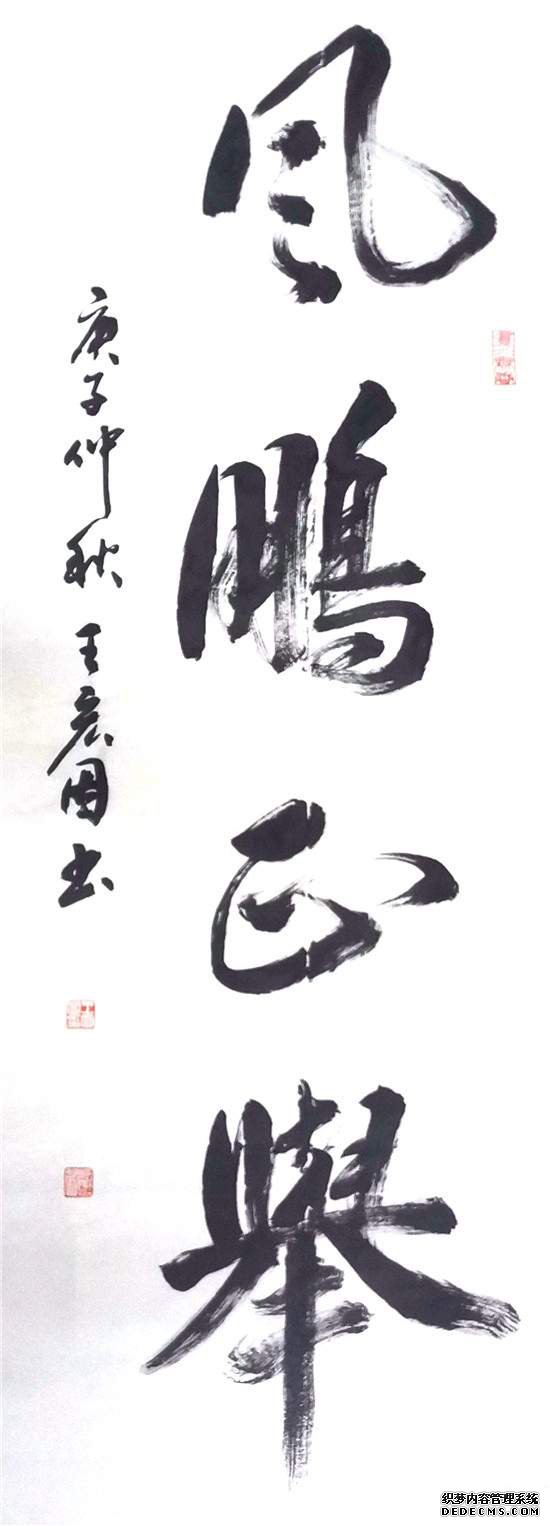 风鵬正舉
庚子仲秋 王书
织梦内容管理系统
DEDECMS.COM